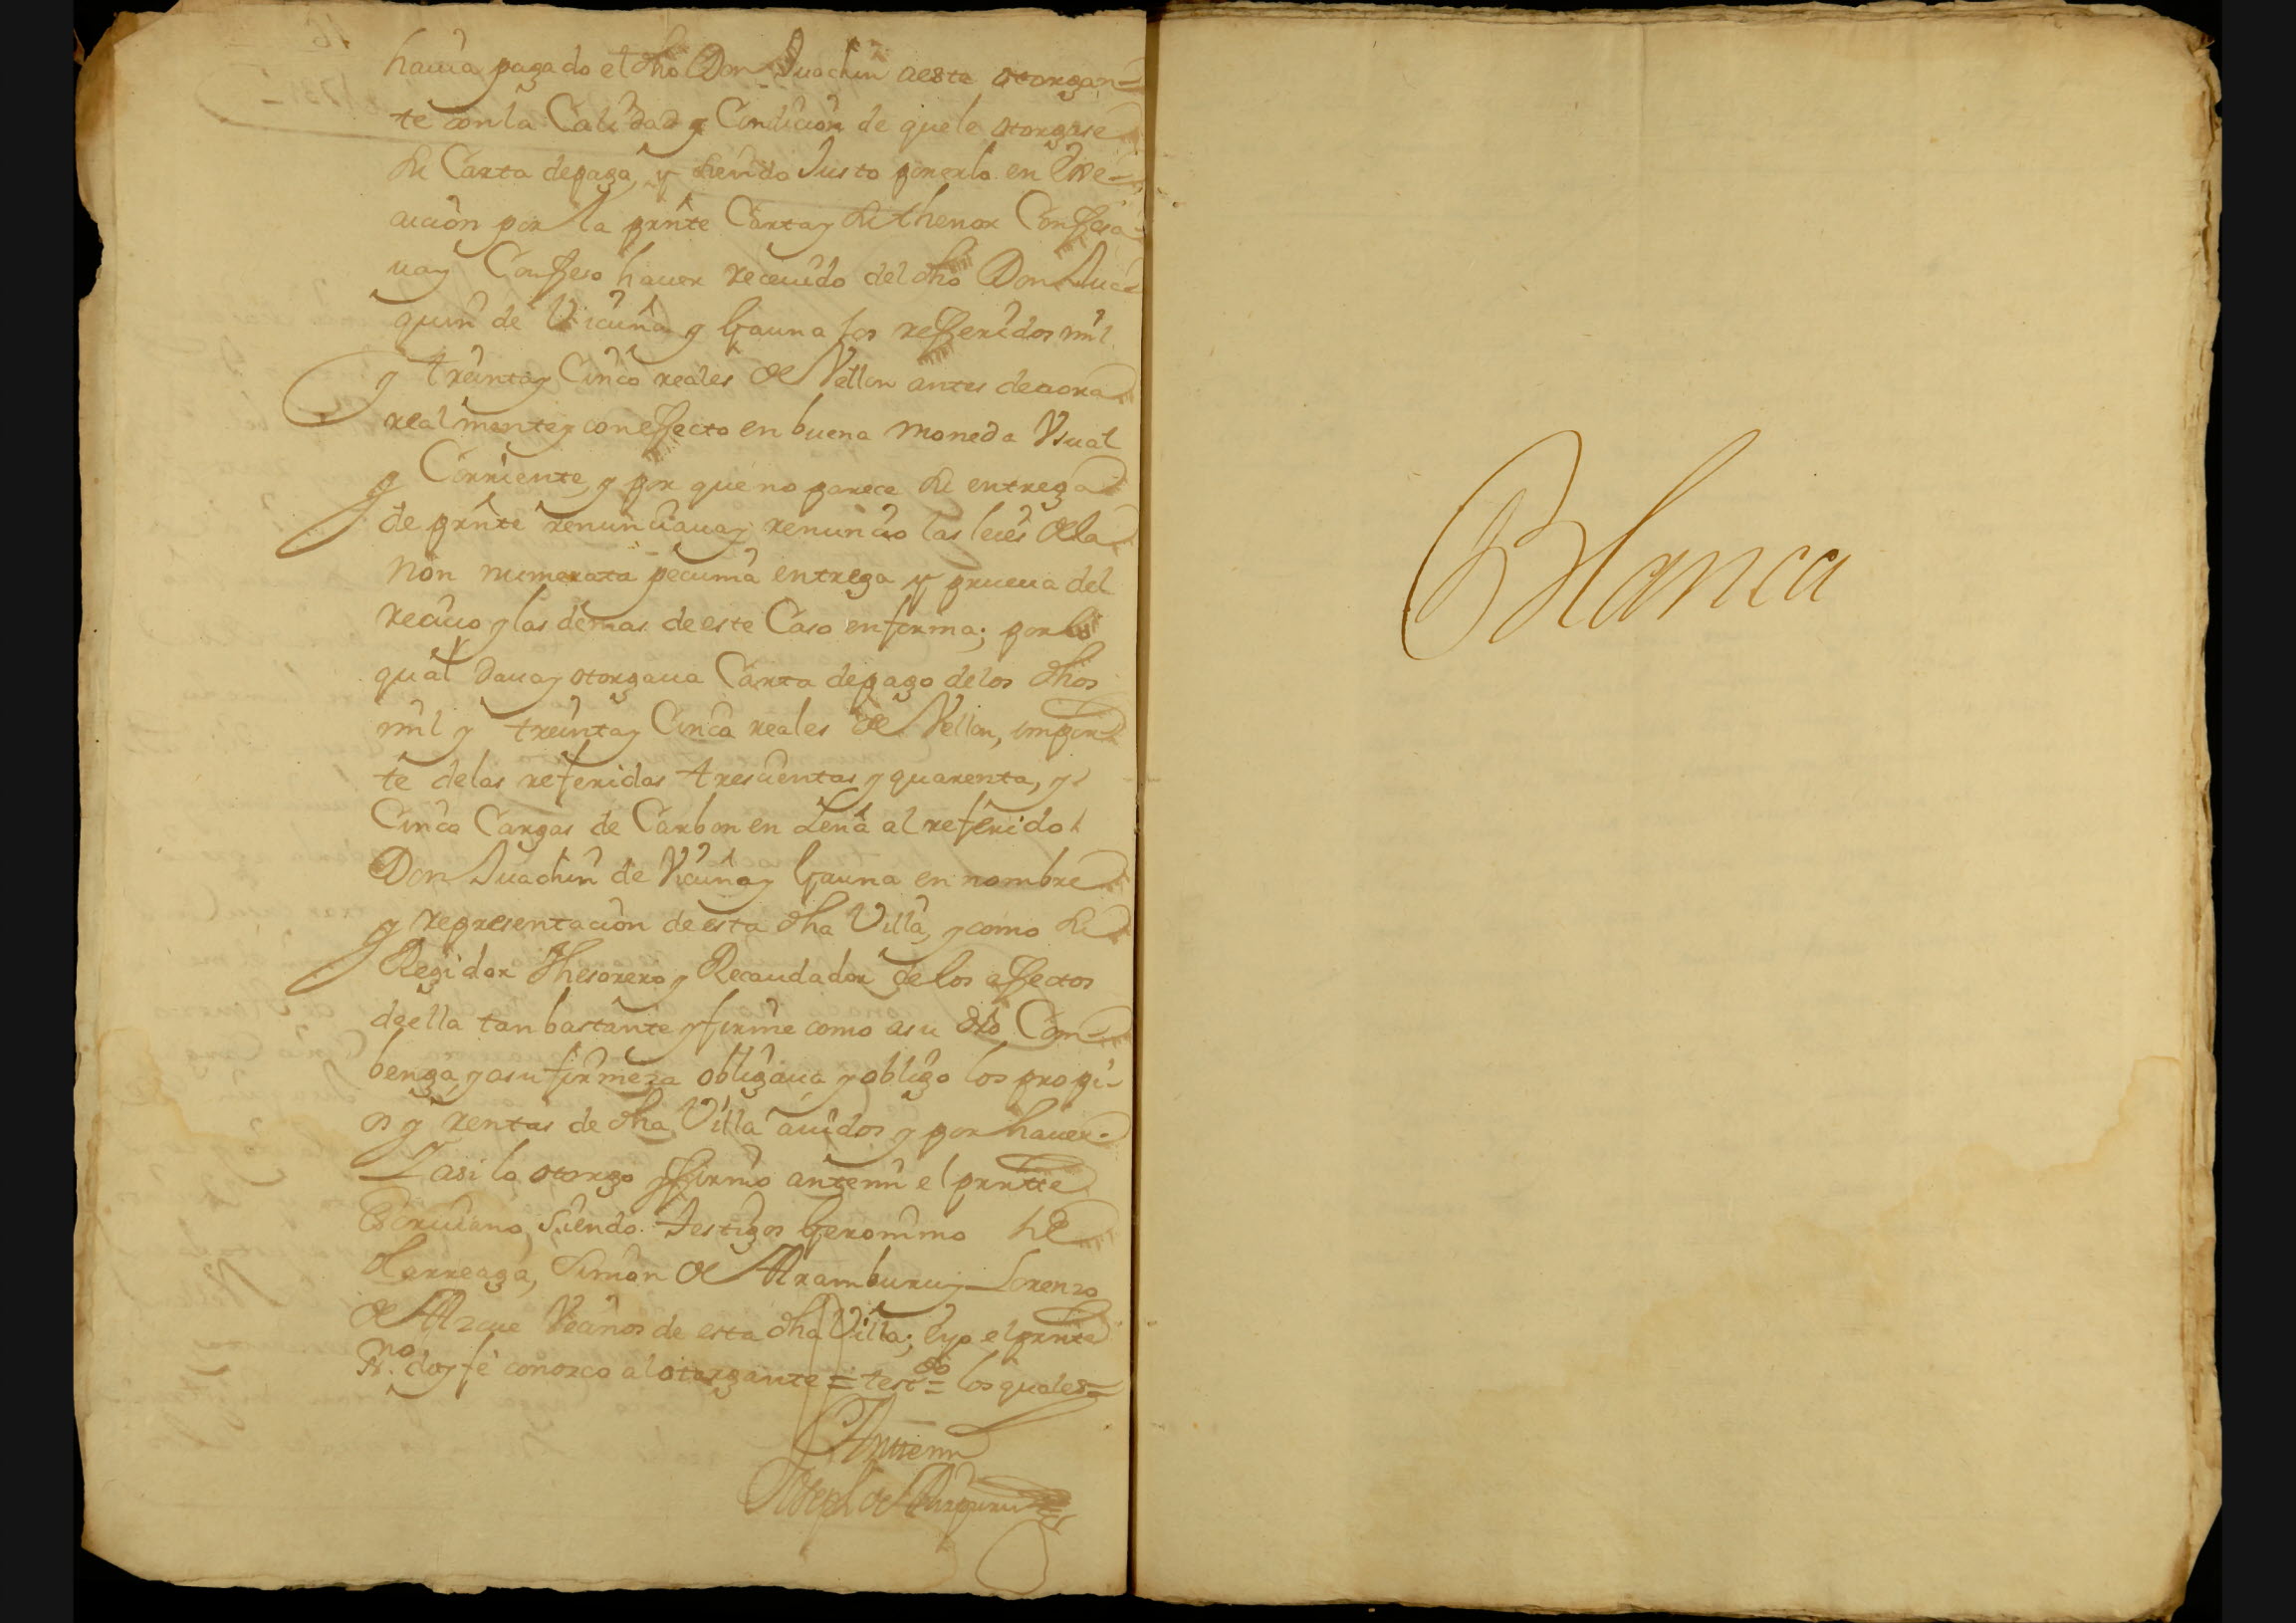 havia pagado el dho Don Juachin a este otorgan-
te con la Calidad y Condicion de que le otorgase
su Carta de pago, y siendo Justo ponerlo en Exe-
cucion por la prnte Carta y su thenor Confesa-
va y Confeso haver recevido del dho Don Jua-
quin de Vicuña y Gauna los refferidos mil
y treinta y Cinco reales de Vellon antes de aora
realmente y con effecto en buena moneda Usual
y Corriente, y por que no parece su entrega
de prnte renunciava y renuncio las leies de la
non numerata pecunia entrega y prueva del
recivo y las demas de este Caso en forma; por lo
qual dava y otorgava Carta de pago de los dhos
mil y treinta y Cinco reales de Vellon, impor-
te de las referidas trescientas y quarenta, y
Cinco Cargas de Carbon en Leña al referido
Don Juachin de Vicuña y Gauna en nombre
y representacion de esta dha Villa, y como su
Regidor Thesorero y Recaudador de los effectos
de ella tan bastante y firme como a su dro Com-
benga, y a su firmeza obligava y obligo los propi-
os y rentas de dha Villa avidos y por haver
Y asi lo otorgo y firmo ante mi el prntte
Escrivano, siendo Testigos Geronimo de
Larreaga, Simon de Aramburu y Lorenzo
de Azcue Vecinos de esta dha Villa; e yo el prnte
Ss.no doy fe conozco al otorgante = test.do = los quales =
Antte mi
Joseph de Aizpuru
Blanca